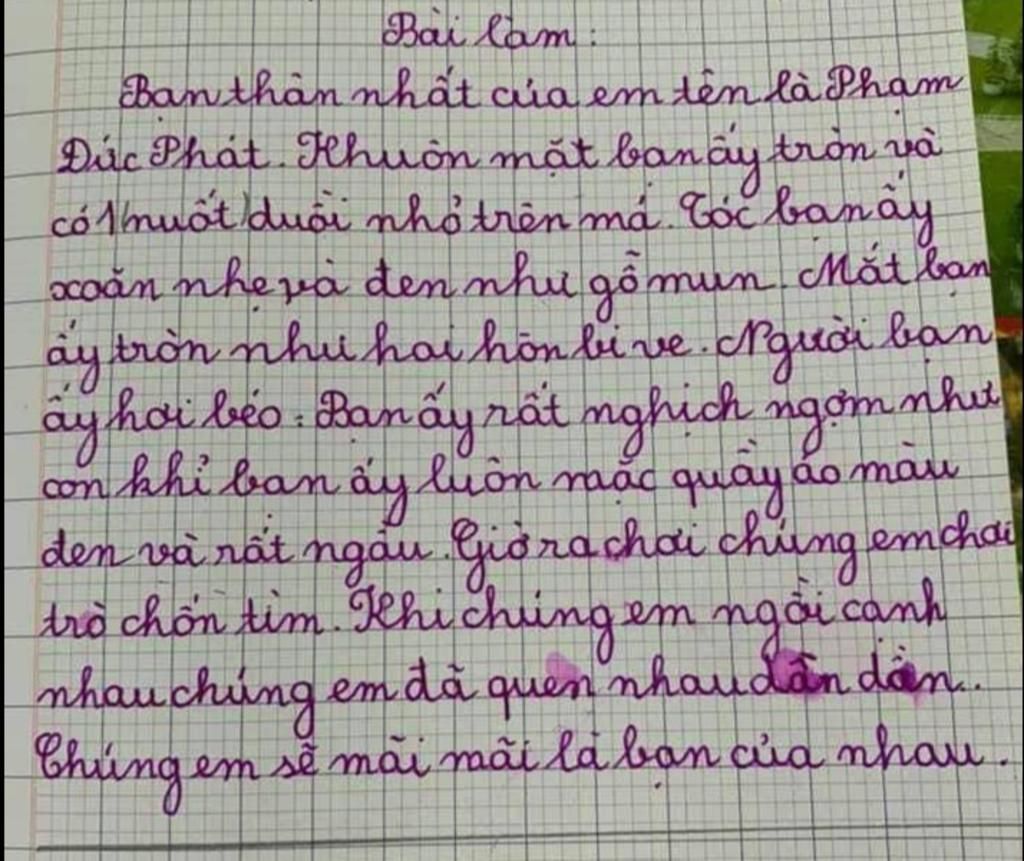 Bài làm:
Bạn thân nhất của em tên là Phạm
Đức Phát. Khuôn mặt bạn ấy tròn và
có 1 nuốt duồi nhỏ trên má. Tóc bạn ấy
xoăn nhẹ và đen như gỗ mun. Mắt bạn
ấy tròn như hai hòn bi ve. Người bạn
ấy hơi béo. Bạn ấy rất nghịch ngợm như
con khỉ bạn ấy luôn mặc quầy áo màu
đen và rất ngầu. Giờ ra chơi chúng em chơi
trò chốn tìm. Khi chúng em ngồi cạnh
nhau chúng em đã quen nhau dần dần..
Chúng em sẽ mãi mãi là bạn của nhau.